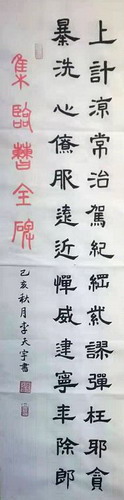 上計涼常治駕紀綱紫謬彈枉耶貪
暴洗心僚服遠近憚威建寧年除郎
集臨曹全碑
己亥秋月李天宇書